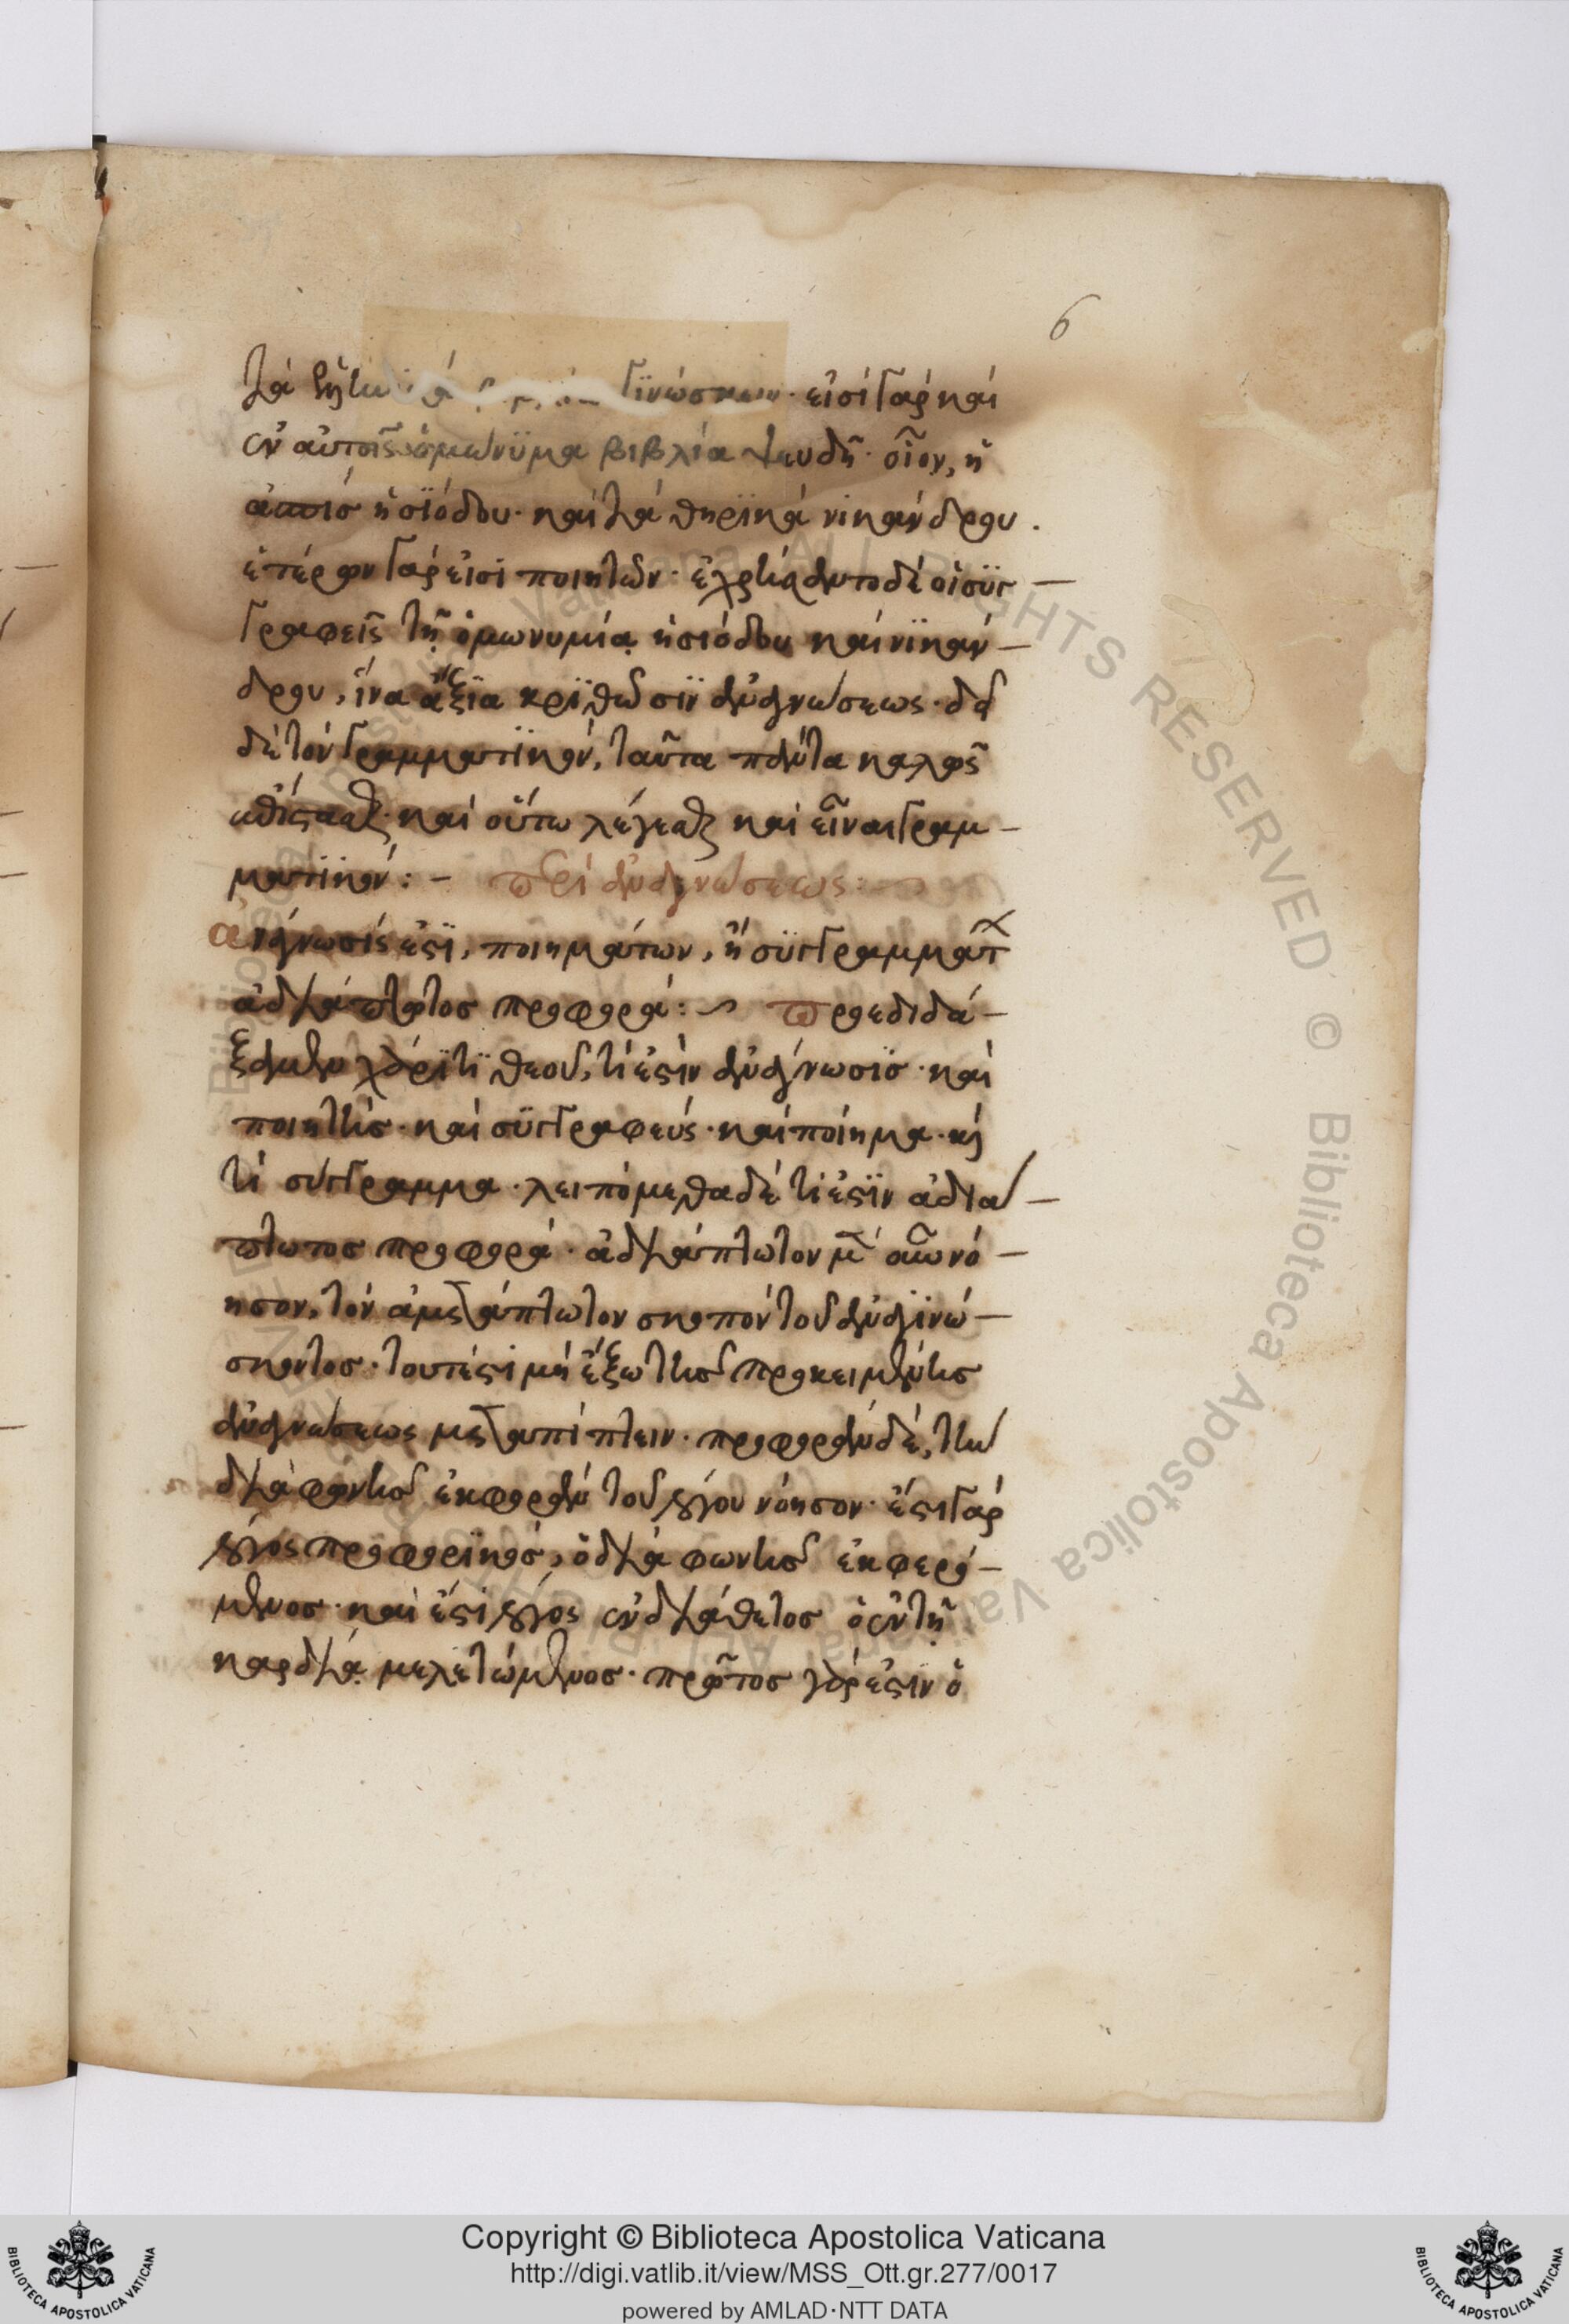 6
τὰ γινώσκων· εἰσὶ γὰρ καὶ
ἐν αὐτοῖς ὁμώνϋμα βιβλία ψευδῆ· οἷον, ἡ
ἀσπὶσ ἡσϊόδου· καὶ τὰ θηρϊακὰ νικάνδρου.
ἑτέρων γάρ εἰσι ποιητῶν· ἐχρήσαντο δὲ οἱ σϋγ—
γραφεῖς τῇ ὁμωνυμίᾳ ἡσιόδου καὶ νϊκάν—
δρου, ἵνα ἄξϊα κρϊθῶσϊν ἀναγνώσεως· δεῖ
δὲ τὸν γραμματϊκὸν, ταῦτα πάντα καλῶς
ἐπίστασθαι· καὶ οὕτω λέγεσθαι καὶ εἶναι γραμ—
ματϊκόν:— περὶ ἀναγνώσεως:
ἀνάγνωσίς ἐστϊ, ποιημάτων, ἢ σϋγγραμμάτων
ἀδιάπτωτοσ προφορά: προεδιδά—
ξαμεν χάρϊτϊ θεοῦ, τί ἐστὶν ἀνάγνωσϊσ· καὶ
ποιητὴσ· καὶ σϋγγραφεύς· καὶ ποίημα· καὶ
τί σύγγραμμα· λειπόμεθα δὲ τί ἐστϊν ἀδια—
πτωτοσ προφορά· ἀδιάπτωτον μὲν οὖν νό—
ησον, τὸν ἀμετάπτωτον σκοπὸν τοῦ ἀναγϊνώ—
σκοντοσ· τουτέστι μὴ ἔξω τῆσ προκειμένησ
ἀναγνώσεως μεταπίπτειν· προφορὰν δὲ, τὴν
διὰ φωνῆσ ἐκφορὰν τοῦ λόγου νόησον· ἔστι γὰρ
λόγος προφορϊκὸσ, ὁ διὰ φωνῆσ ἐκφερό—
μενοσ· καὶ ἔστι λόγος ἐνδιάθετοσ ὁ ἐν τῇ
καρδίᾳ μελετώμενοσ· πρῶτοσ γάρ ἐστϊν ὁ
Copyright © Biblioteca Apostolica Vaticana
http://digi.vatlib.it/view/MSS_Ott.gr.277/0017
powered by AMLAD·NTT DATA
BIBLIOTECA APOSTOLICA VATICANA
BIBLIOTECA APOSTOLICA VATICANA